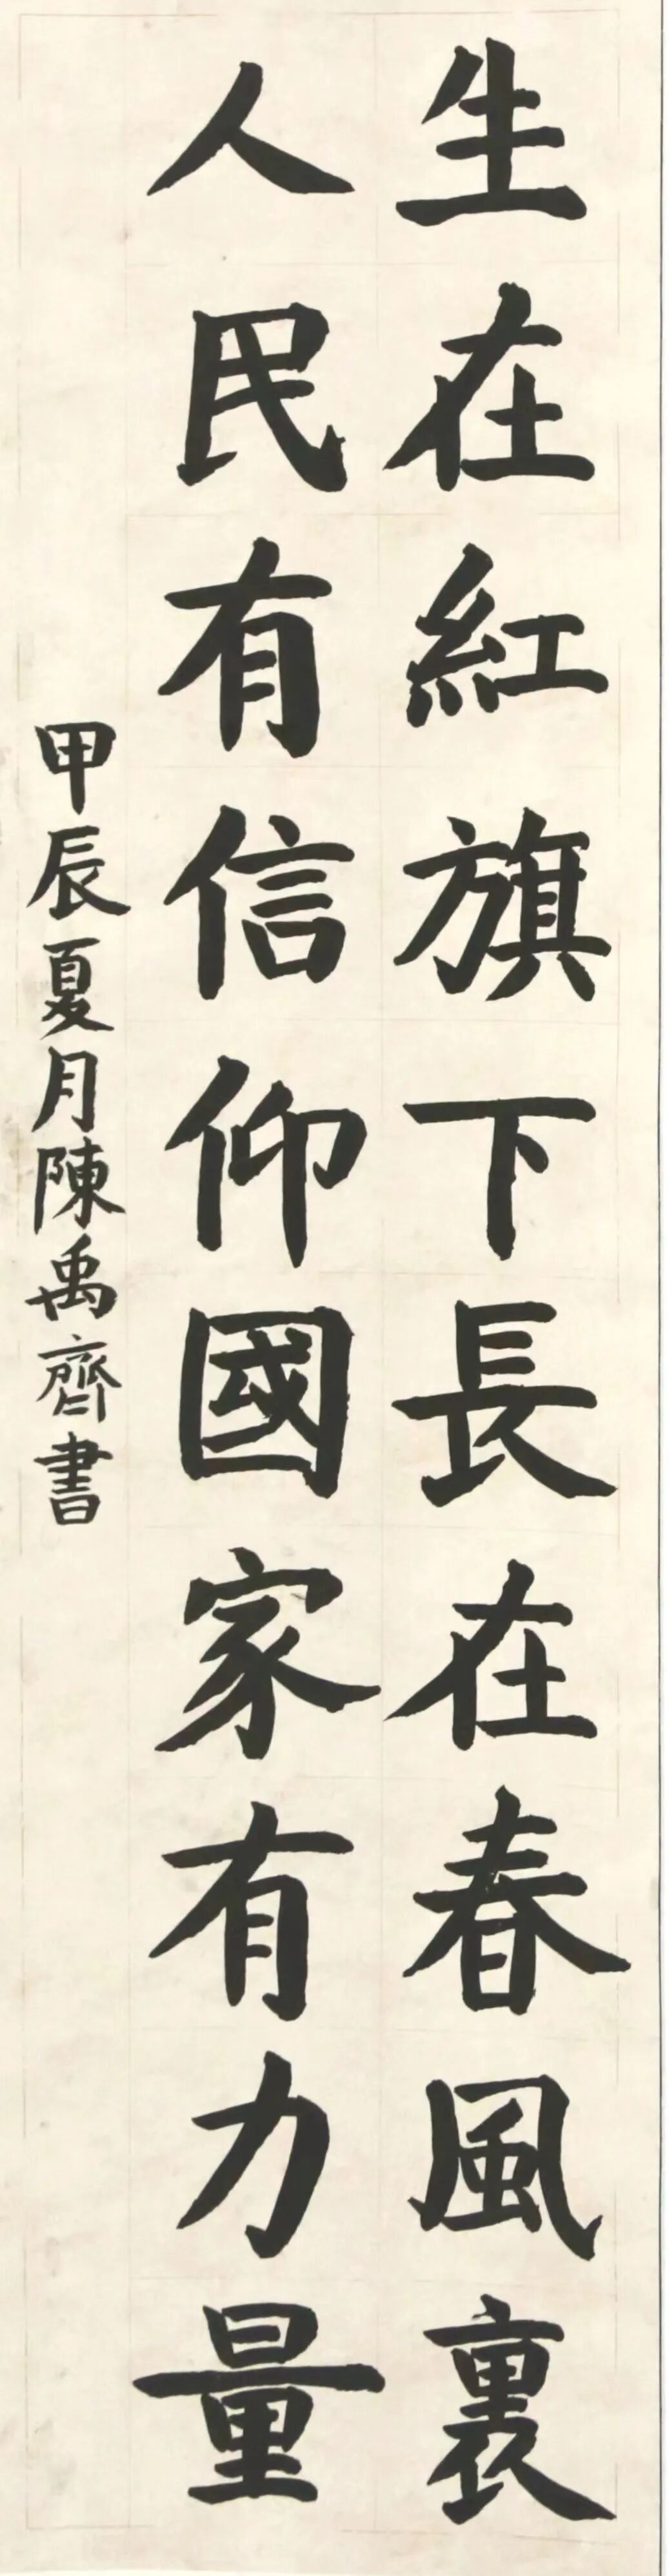 生在紅旗下長在春風裏
人民有信仰國家有力量
甲辰夏月陳禹齊書